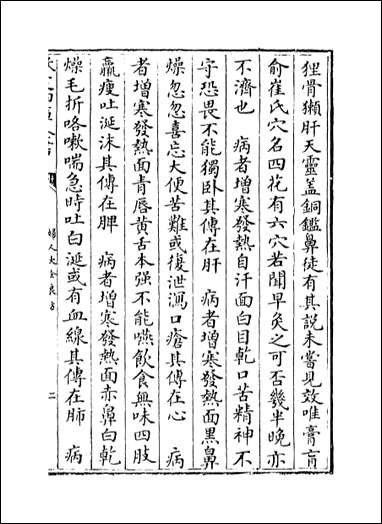 狸骨獺肝天靈蓋銅鑑鼻徒有其說未嘗見效唯膏肓
俞崔氏穴名四花有六穴若聞早灸之可否幾半晚亦
不濟也　病者增寒發熱自汗面白目乾口苦精神不
守恐畏不能獨卧其傳在肝　病者增寒發熱面黑鼻
燥忽忽喜忘大便苦難或復泄瀉口瘡其傳在心　病
者增寒發熱面青唇黄舌本强不能嚥飲食無味四肢
羸瘦吐涎沫其傳在脾　病者增寒發熱面赤鼻白乾
燥毛折咯嗽喘急時吐白涎或有血線其傳在肺　病
婦人大全良方
二